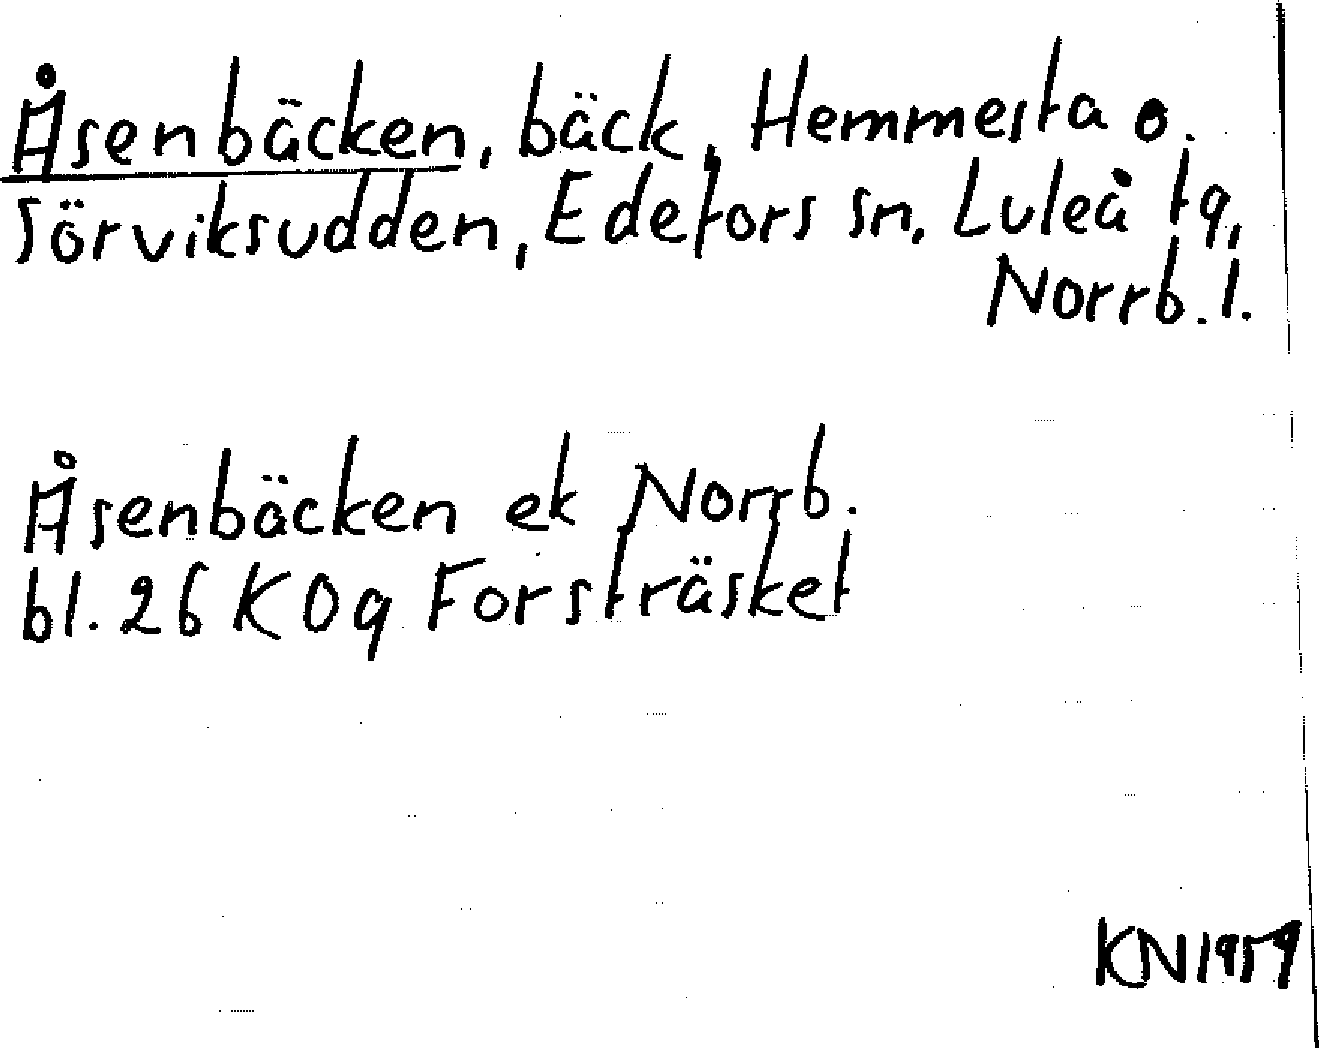 Åsenbäcken, bäck, Hemmesta o.
Sörviksudden, Edefors sn, Luleå tg,
Norrb. l.
Åsenbäcken ek Norrb.
bl. 26 K Og Forsträsket
KN 1959